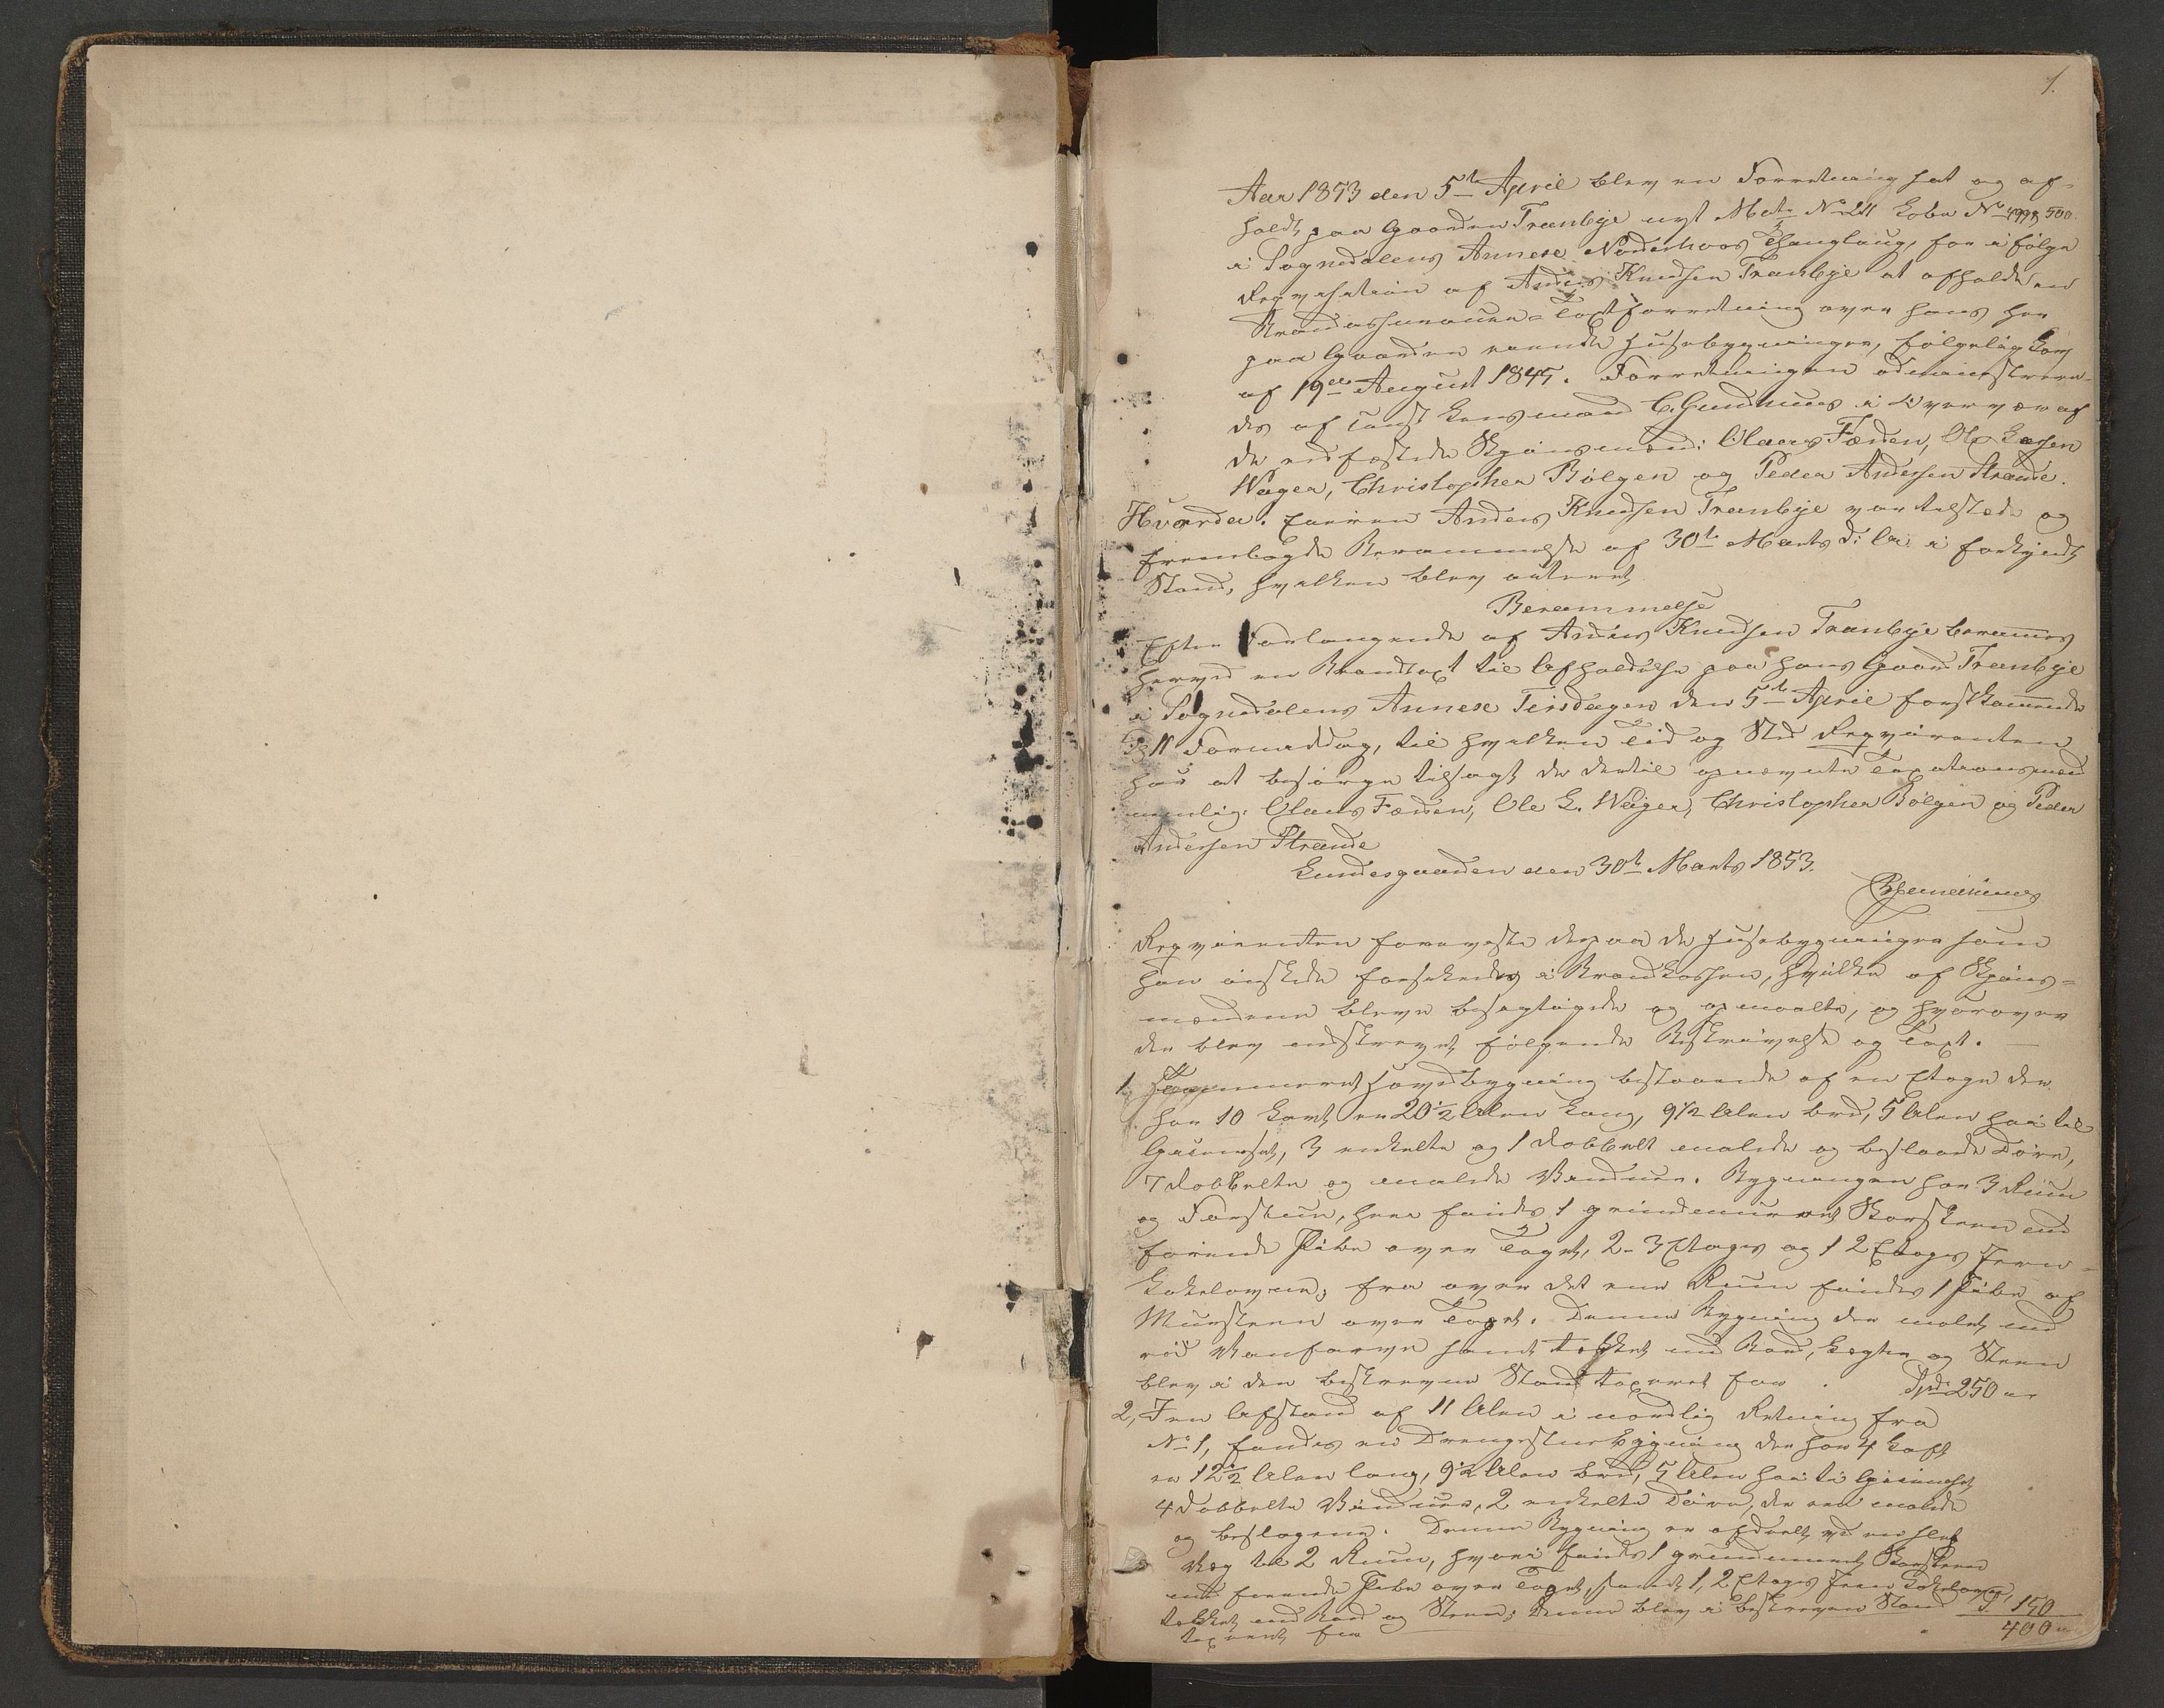 1.
Aar 1853 den 5te April blev en Forretning sat og af-
holdt paa Gaarden Tranbye nyt Mat. No 211 Løbe No 499 & 500
i Sognedalens Annex Norderhovs Thinglaug, for i følge
Reqvisition af Anders Knudsen Tranbye at afholde en
Brandassurance-Taxtforretning over hans her
paa Gaarden værende Huusebygninger, følgelig Lov
af 19de August 1845. Forretningen administrere-
des af const Lensmand C. Gundersen i Overvær af
de eedfæstede Skjønsmænd: Claus Færden, Ole Larsen
Wager, Christopher Bølgen og Peder Andersen Strande.
Hvorda: Eieren Anders Knudsen Tranbye var tilstede og
fremlagde Berammelse af 30te Marts d: A: i forkyndt
Stand, hvilken blev acteret
Berammelse
Efter Forlangende af Anders Knudsen Tranbye berammes
herved en Brandtaxt til Afholdelse paa hans Gaard Tranbye
i Sognedalens Annex Tirsdagen den 5te April førstkommende
Kl 11 Formiddag, til hvilken Tid og Sted Reqvirenten
har at besørge tilsagt de dertil opnævnte Taxationsmænd
nemlig: Claus Færden, Ole L. Wager, Christopher Bølgen og Peder
Andersen Strande
Lundesgaarden den 30te Marts 1853.
Reqvirenten foreviste derpaa de Huusebygninger som
han ønskede forsikrede i Brandkassen, hvilke af Skjøns-
mændene bleve besigtigede og opmaalte, og hvorover
der blev indskrevet følgende Beskrivelse og Taxt. —
1, Tømmeret Hovedbygning bestaaende af en Etage der
har 10 Laft, er 20½ Alen lang, 9½ Alen bred, 5 Alen høi til
Gesimset, 3 enkelte og 1 dobbelt malede og beslaaede Døre,
7 dobbelte og malede Vinduer. Bygningen har 3 Rum
og Forstue, heri findes 1 grundmuret Skorsteen med
førende Pibe over Taget, 2-3 Etages og 1 2 Etages Jern-
Kakelovne; fra over det ene Rum findes 1 Pibe af
Muursteen over Taget. Denne Bygning der malet med
rød Vandfarve samt tækket med Bord, Lægter og Steen
blev i den beskrevne Stand taxeret for . Spd 250 „
2, I en Afstand af 11 Alen i nordlig Retning fra
No 1, findes en Drengestuebygning der har 4 Laft
er 12½ Alen lang, 9½ Alen bred, 5 Alen høi til Gesimset
4 dobbelte Vinduer, 2 enkelte Døre, de ere malede
og beslagene. Denne Bygning er afdeelt ved en slet
Væg til 2 Rum, hvori findes 1 grundmuret Skorsteen
med førende Pibe over Taget, samt 1, 2 Etages Jern Kakelovn,
tækket med Bord og Steen; denne blev i beskreven Stand
taxeret for „ 150
400 „